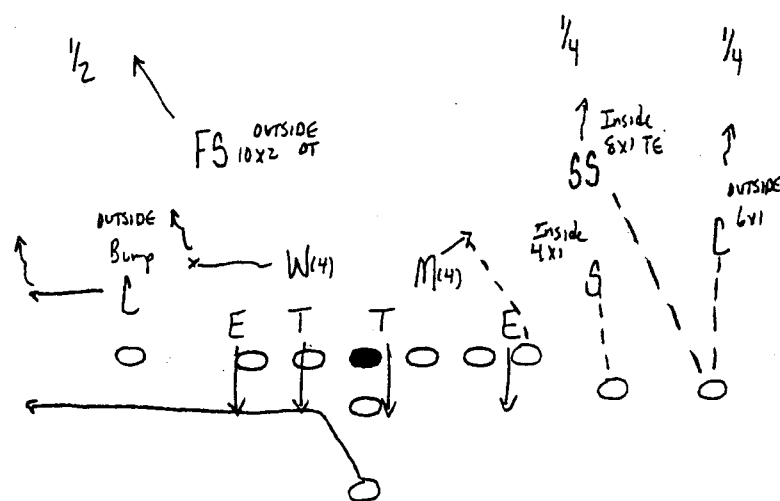 1/2
1/4
1/4
FS
OUTSIDE
10x2 OT
SS
Inside
8x1 TE
OUTSIDE
6x1
C
OUTSIDE
Bump
C
W(4)
M(4)
Inside
4x1
S
E
T
T
E